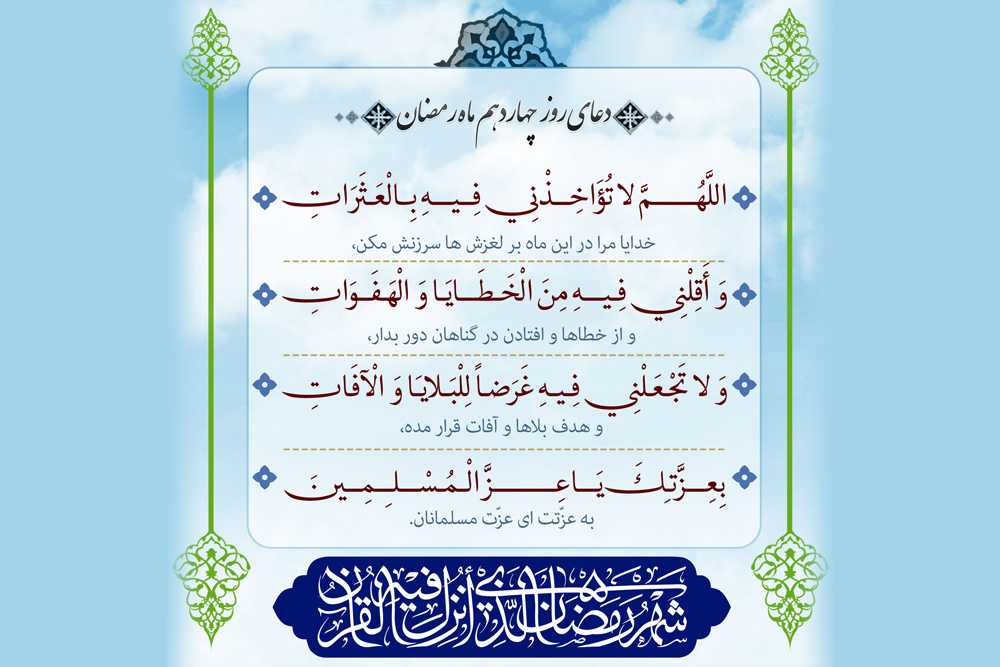 دعای روز چهاردهم ماه رمضان
اللَّهُمَّ لا تُؤَاخِذْنِي فِيهِ بِالْعَثَرَاتِ
خدایا مرا در این ماه بر لغزش ها سرزنش مکن،
وَ أَقِلْنِي فِيهِ مِنَ الْخَطَايَا وَ الْهَفَوَاتِ
و از خطاها و افتادن در گناهان دور بدار،
وَ لا تَجْعَلْنِي فِيهِ غَرَضاً لِلْبَلايَا وَ الْآفَاتِ
و هدف بلاها و آفات قرار مده،
بِعِزَّتِكَ يَا عِزَّ الْمُسْلِمِينَ
به عزّتت ای عزّت مسلمانان.
شَهْرُ رَمَضَانَ الَّذِي أُنْزِلَ فِيهِ الْقُرْآنُ